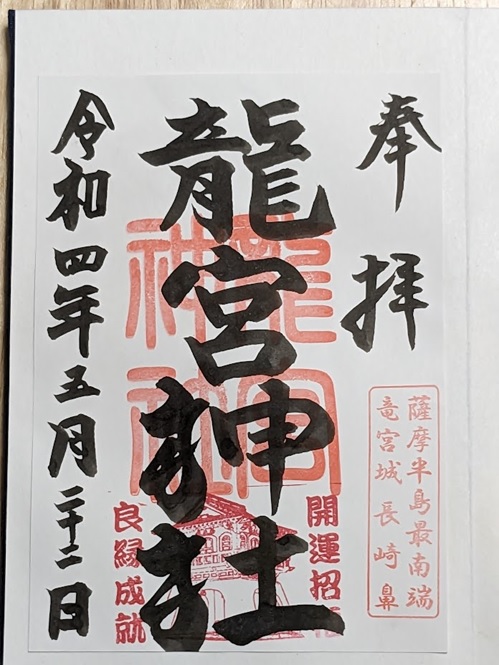 奉拝
薩摩半島最南端
竜宮城 長崎鼻
龍宮神社
龍宮
神社
開運招
良縁成就
令和四年五月二十二日